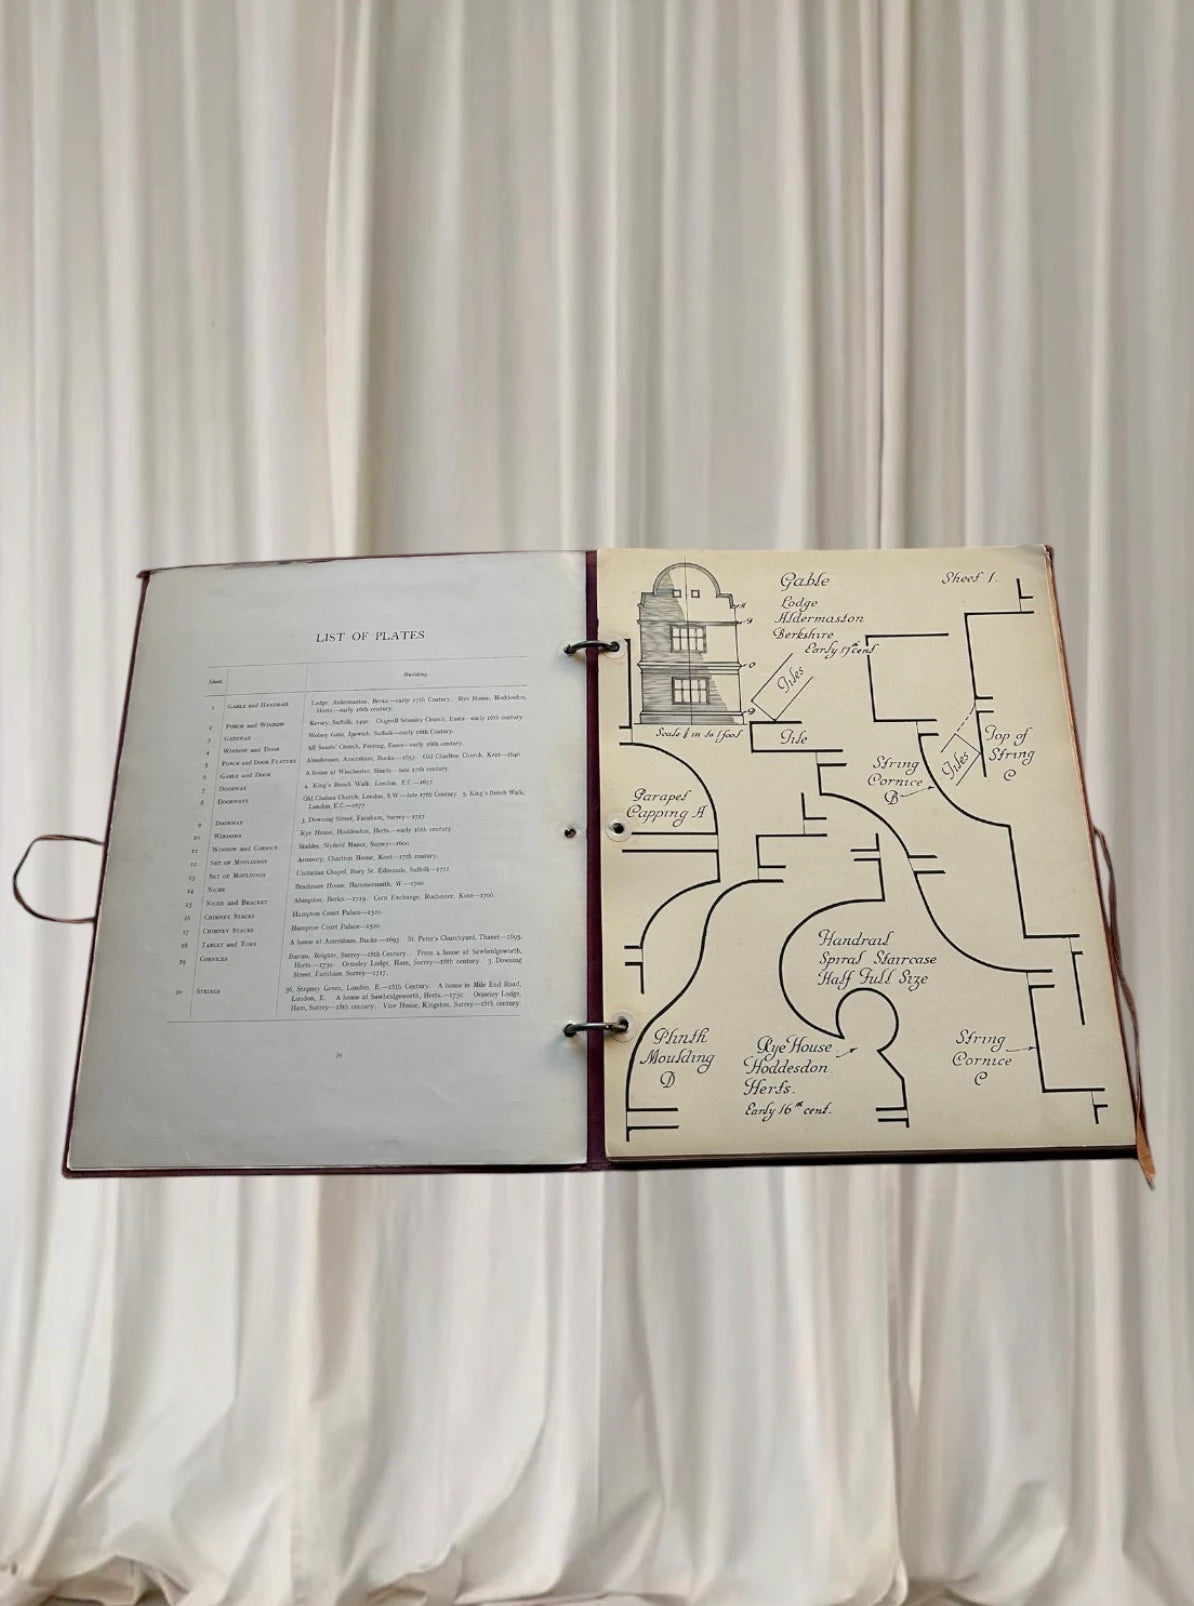 LIST OF PLATES
Sheet. Building.
1 GABLE AND HANDRAIL Lodge, Aldermaston, Berks.—early 17th Century. Rye House, Hoddesdon,
Herts.—early 16th century.
2 PORCH AND WINDOW Kersey, Suffolk, 1490. Chignell Smealey Church, Essex—early 16th century.
3 GATEWAY Wolsey Gate, Ipswich, Suffolk—early 16th Century.
4 WINDOW AND DOOR All Saints' Church, Feering, Essex—early 16th century.
5 PORCH AND DOOR FEATURE Almshouses, Amersham, Bucks.—1657. Old Charlton Church, Kent—1640.
6 GABLE AND DOOR A house at Winchester, Hants.—late 17th century.
7 DOORWAY 4, King's Bench Walk, London, E.C.—1677.
8 DOORWAYS Old Chelsea Church, London, S.W.—late 17th Century. 5, King's Bench Walk,
London, E.C.—1677.
9 DOORWAY 3, Downing Street, Farnham, Surrey—1717.
10 WINDOWS Rye House, Hoddesdon, Herts.—early 16th century.
11 WINDOW AND CORNICE Stables, Slyfield Manor, Surrey—1600.
12 SET OF MOULDINGS Armoury, Charlton House, Kent—17th century.
13 SET OF MOULDINGS Unitarian Chapel, Bury St. Edmunds, Suffolk—1711.
14 NICHE Bradmore House, Hammersmith, W.—1700.
15 NICHE AND BRACKET Abingdon, Berks.—1719. Corn Exchange, Rochester, Kent—1706.
16 CHIMNEY STACKS Hampton Court Palace—1520.
17 CHIMNEY STACKS Hampton Court Palace—1520.
18 TABLET AND TOMB A house at Amersham, Bucks.—1693. St. Peter's Churchyard, Thanet—1695.
19 CORNICES Barons, Reigate, Surrey—18th Century. From a house at Sawbridgeworth,
Herts.—1730. Ormeley Lodge, Ham, Surrey—18th century. 3, Downing
Street, Farnham, Surrey—1717.
20 STRINGS 36, Stepney Green, London, E.—18th Century. A house in Mile End Road,
London, E. A house at Sawbridgeworth, Herts.—1730. Ormeley Lodge,
Ham, Surrey—18th century. Vine House, Kingston, Surrey—18th century.
iv
Gable
Sheet 1.
Lodge
Aldermaston
Berkshire
Early 17th cent.
A
B
C
D
Scale ⅛ in to 1 foot
Tiles
Tile
Tiles
Top of
String
C
String
Cornice
B
Parapet
Capping A
Handrail
Spiral Staircase
Half Full Size
Plinth
Moulding
D
Rye House
Hoddesdon.
Herts.
Early 16th cent.
String
Cornice
C